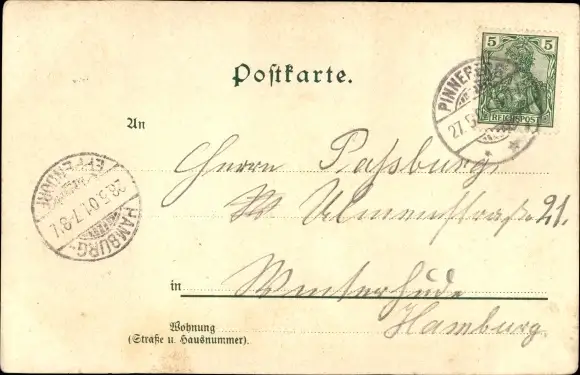 5 5
REICHSPOST
PINNEBERG
27.5
Postkarte.
An
Herrn Paßburg,
Ulmenstraße 21.
in Winterhude
Hamburg.
Wohnung
(Straße u. Hausnummer).
HAMBURG-
EPPENDORF
28.5.01.7-8V.